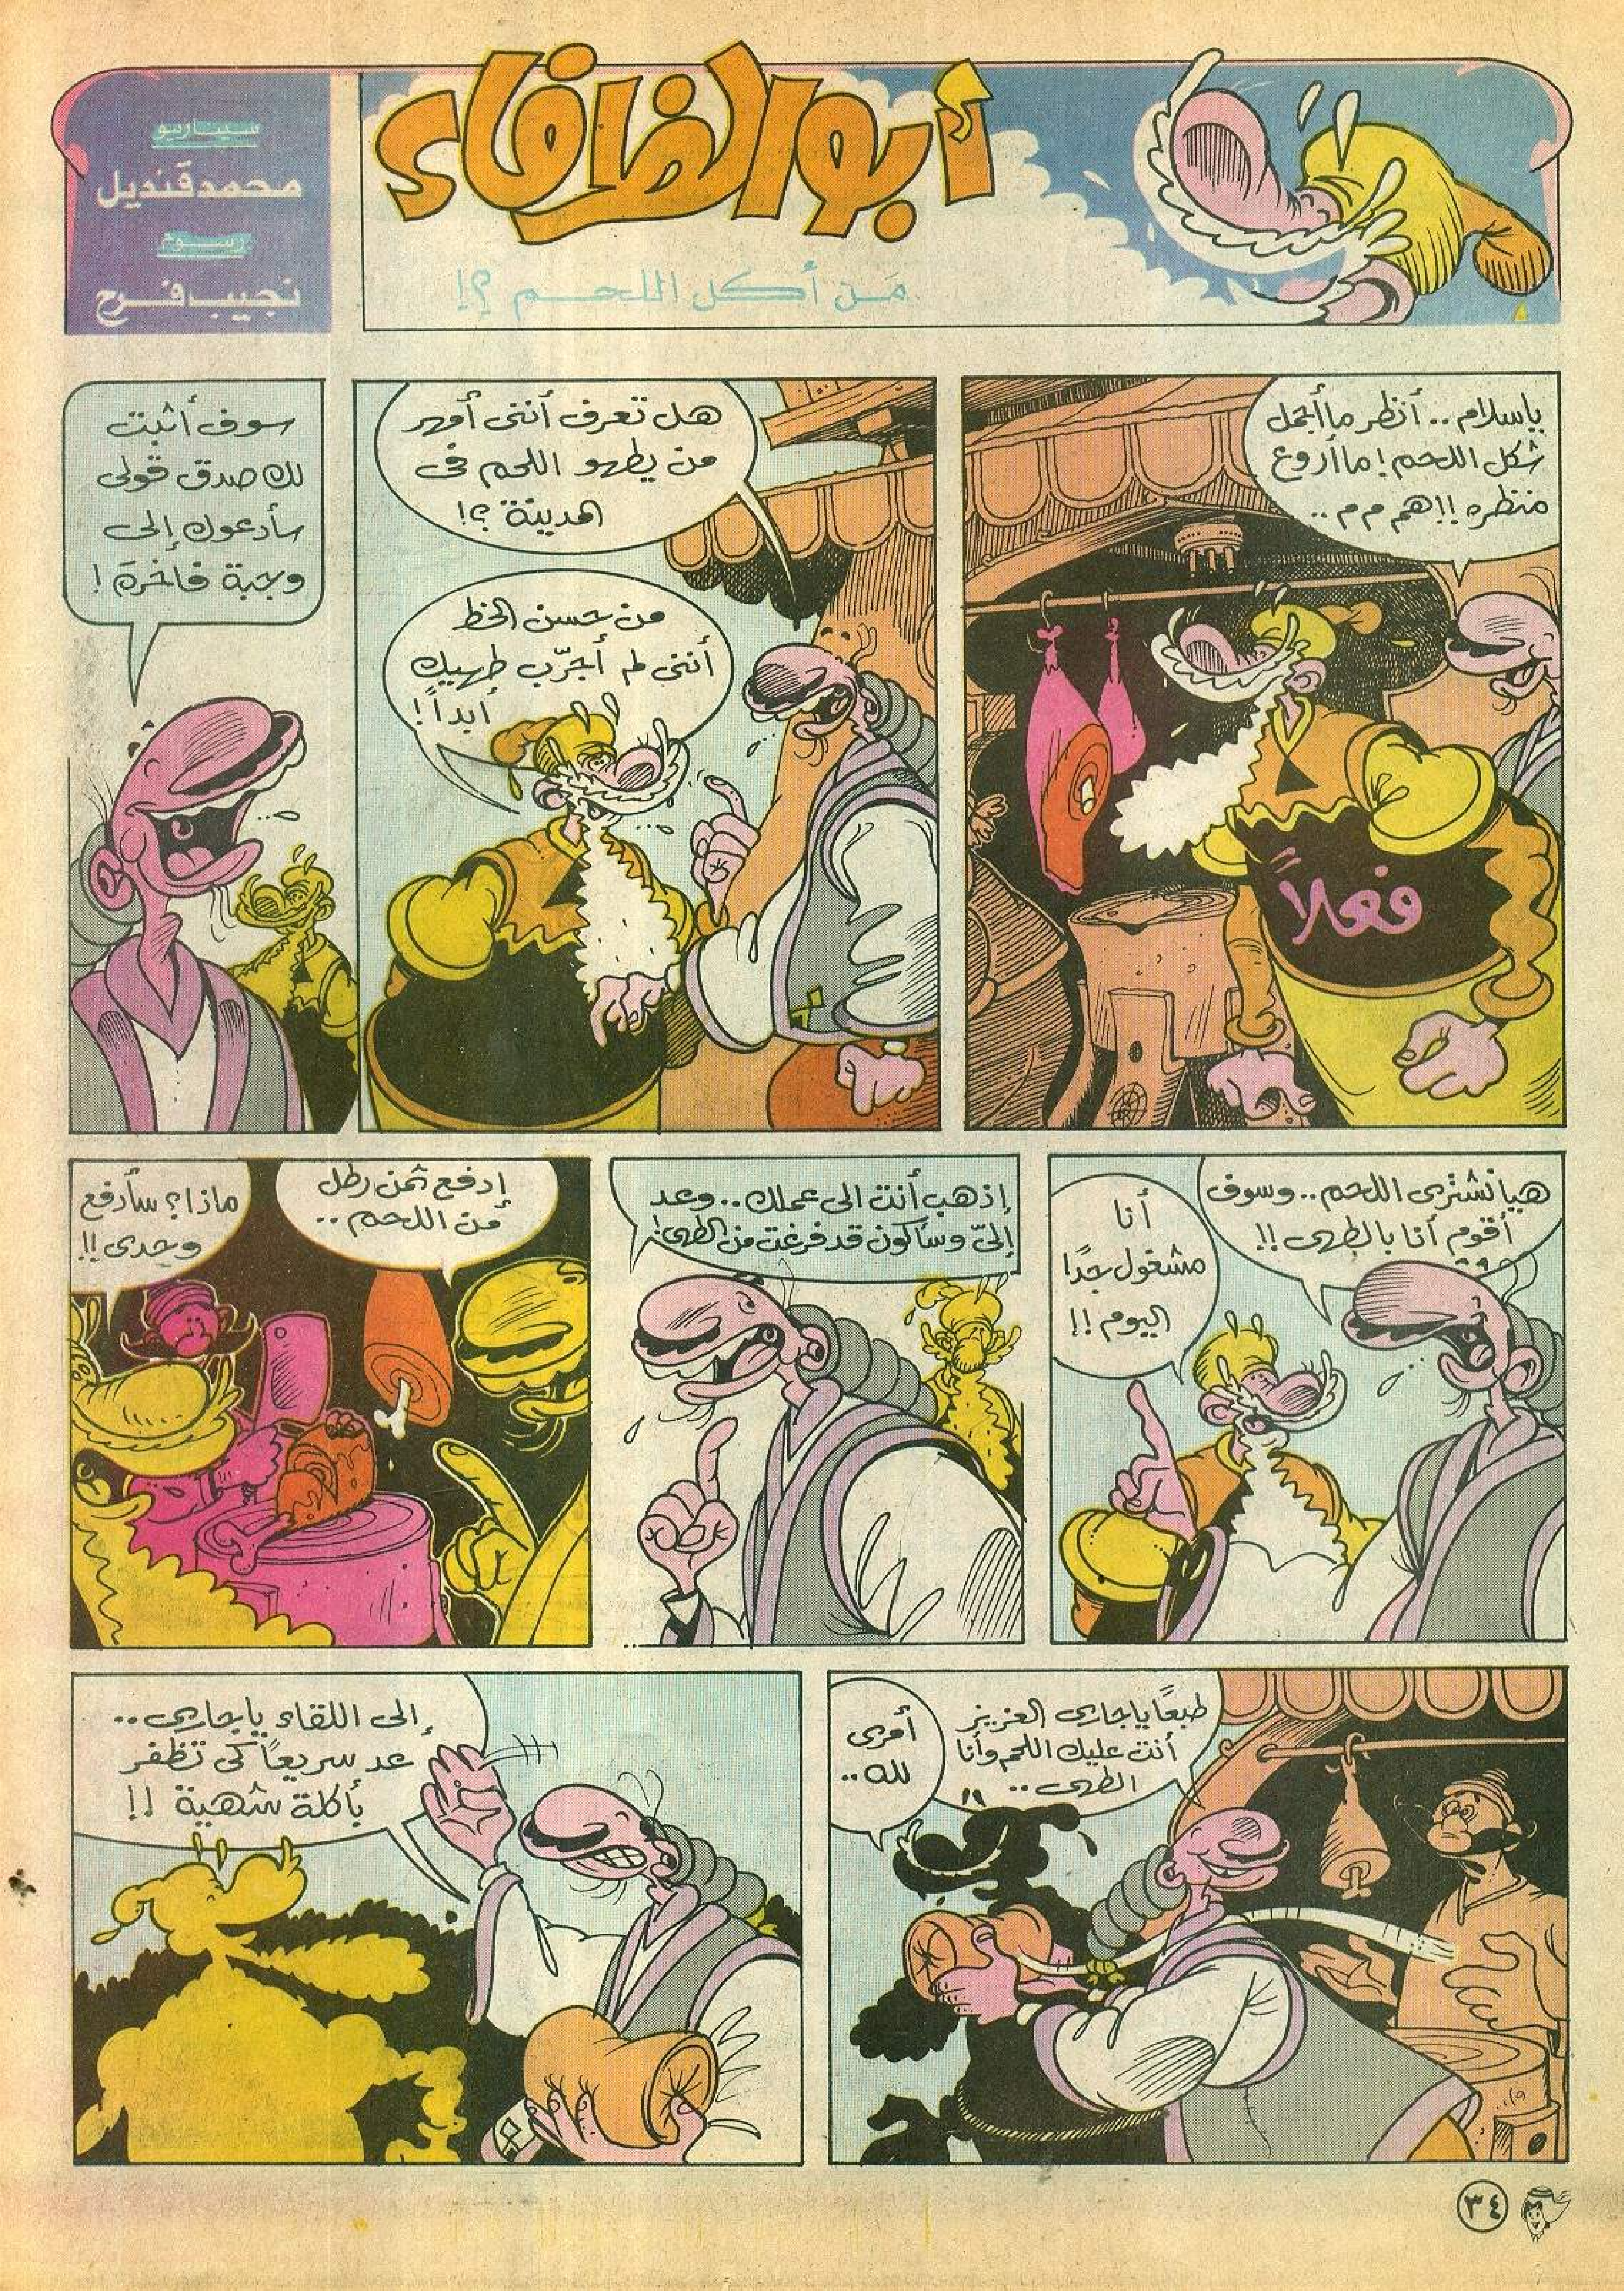 أبو الظرفاء
مَن أكل اللحم ؟!
سيناريو
محمد قنديل
رسوم
نجيب فرح
ياسلام .. أنظر ما أجمل
شكل اللحم ! ما أروع
منظره !! هم م م ..
فعلاً
هل تعرف أننى أمهر
من يطهو اللحم فى
المدينة ؟!
من حسن الحظ
أننى لم أجرّب طهيك
أبداً !
سوف أثبت
لك صدق قولى
سأدعوك إلى
وجبة فاخرة !
هيا نشترى اللحم .. وسوف
أقوم أنا بالطهى !!
أنا
مشغول جدًا
اليوم !!
إذهب أنت الى عملك .. وعد
إلىّ وسأكون قد فرغت من الطهى !
إدفع ثمن رطل
من اللحم ..
ماذا ؟ سأدفع
وحدى !!
طبعًا ياجارى العزيز
أنت عليك اللحم وأنا
الطهى ..
أمرى
لله ..
إلى اللقاء ياجارى ..
عد سريعاً كى تظفر
بأكلة شهية !!
٣٤